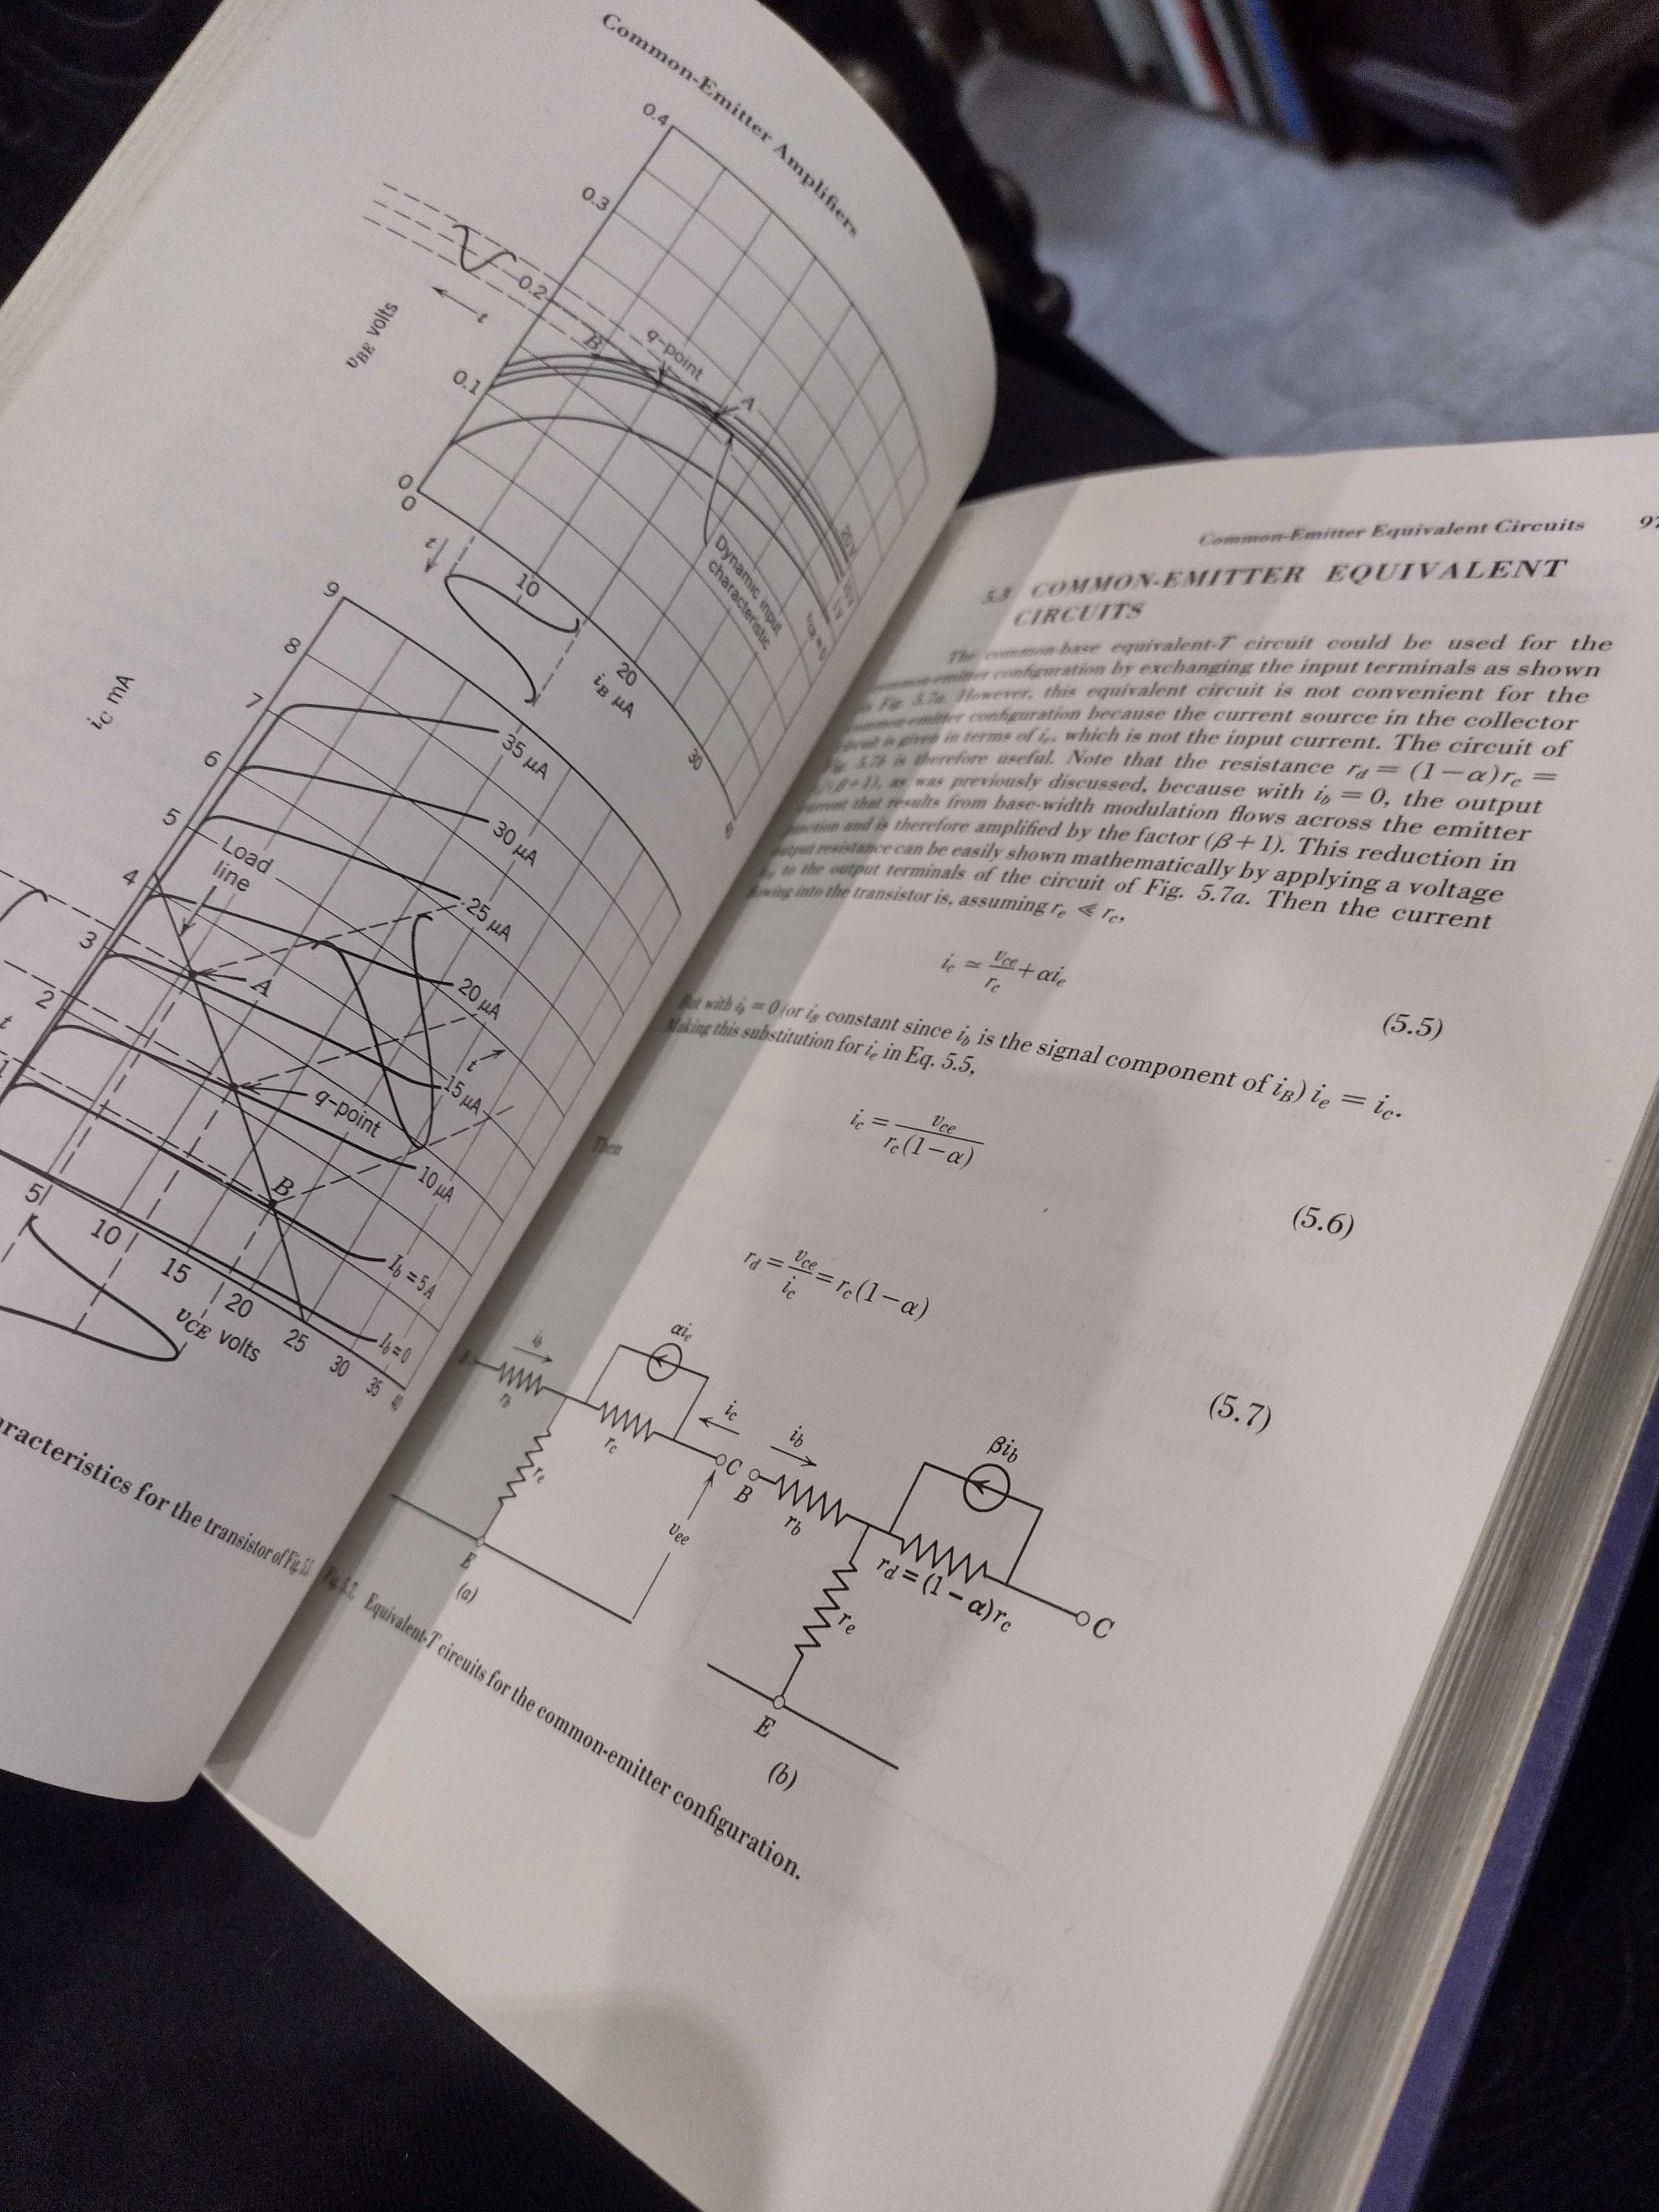 Common-Emitter Amplifiers
0.4
0.3
0.2
0.1
0
0
υBE volts
t
B
q-point
A
Dynamic input
characteristic
t
10
20
30
iB μA
20 V
iC mA
9
8
7
6
5
4
3
2
1
t
35 μA
30 μA
25 μA
20 μA
15 μA
10 μA
Ib = 5 A
Ib = 0
Load
line
A
q-point
B
t
5
10
15
20
25
30
35
40
υCE volts
characteristics for the transistor of Fig.
Common-Emitter Equivalent Circuits 97
5.3 COMMON-EMITTER EQUIVALENT
CIRCUITS
The common-base equivalent-T circuit could be used for the
common-emitter configuration by exchanging the input terminals as shown
in Fig. 5.7a. However, this equivalent circuit is not convenient for the
common-emitter configuration because the current source in the collector
circuit is given in terms of ie, which is not the input current. The circuit of
Fig. 5.7b is therefore useful. Note that the resistance rd = (1−α)rc =
/(β+1), as was previously discussed, because with ib = 0, the output
current that results from base-width modulation flows across the emitter
junction and is therefore amplified by the factor (β+1). This reduction in
output resistance can be easily shown mathematically by applying a voltage
to the output terminals of the circuit of Fig. 5.7a. Then the current
flowing into the transistor is, assuming re ≪ rc,
ic ≃ υce/rc + αie (5.5)
But with ib = 0 (or iB constant since ib is the signal component of iB) ie = ic.
Making this substitution for ie in Eq. 5.5,
ic = υce/rc(1−α) (5.6)
Then
rd = υce/ic = rc(1−α) (5.7)
B
ib
rb
αie
rc
re
ic
C
υee
E
(a)
B
ib
rb
βib
rd = (1−α)rc
re
C
E
(b)
Fig. 5.7. Equivalent-T circuits for the common-emitter configuration.